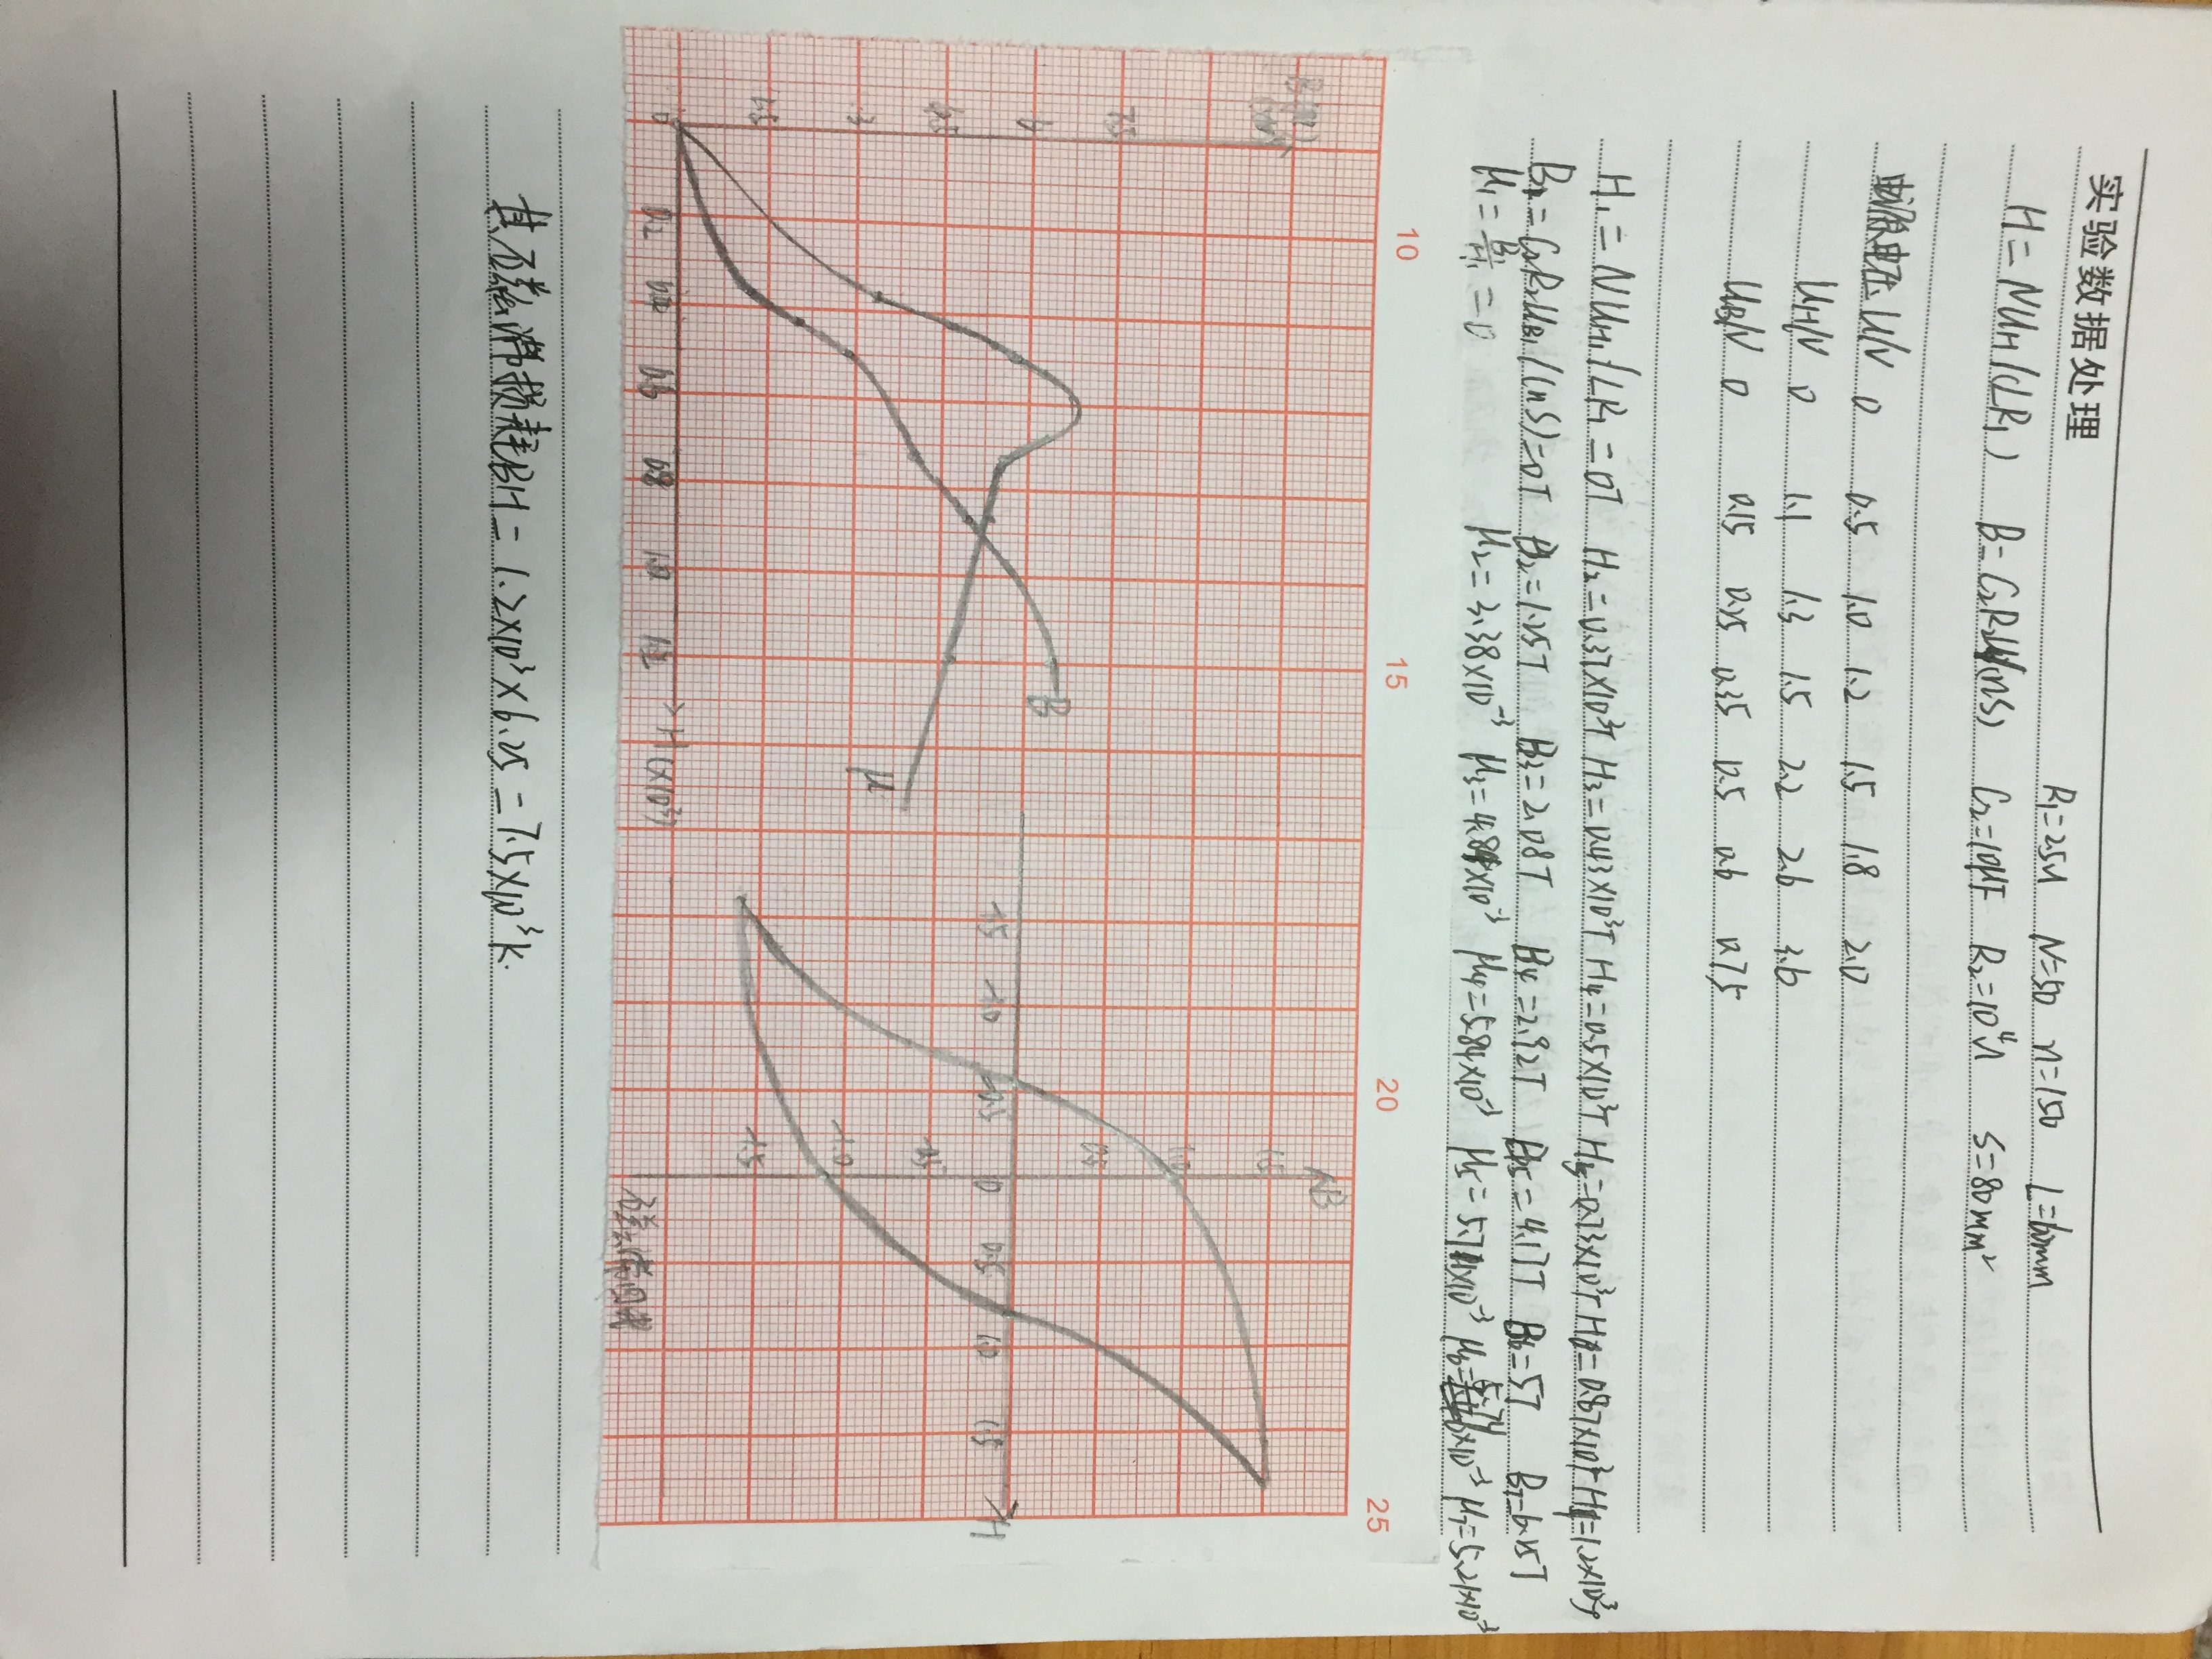 实验数据处理
R₁=2.5Ω N=50 n=150 L=60mm
H=NU_H/(LR₁) B=C₂R₂U/(nS) C₂=10μF R₂=10⁴Ω S=80mm²
电源电压U/V 0 0.5 1.0 1.2 1.5 1.8 2.0
U_H/V 0 1.1 1.3 1.5 2.2 2.6 3.6
U_B/V 0 0.15 0.25 0.35 0.5 0.6 0.75
H₁=NU_H₁/LR₁=0T H₂=0.37×10³T H₃=0.43×10³T H₄=0.5×10³T H₅=0.73×10³T H₆=0.87×10³T H₇=1.2×10³
B₁=C₂R₂U_B₁/(nS)=0T B₂=1.25T B₃=2.08T B₄=2.92T B₅=4.17T B₆=5T B₇=6.25T
μ₁=B₁/H₁=0 μ₂=3.38×10⁻³ μ₃=4.84×10⁻³ μ₄=5.84×10⁻³ μ₅=5.71×10⁻³ μ₆=5.74×10⁻³ μ₇=5.21×10⁻³
10 15 20 25
B
7.5
6
4.5
3
1.5
0 0.2 0.4 0.6 0.8 1.0 1.2 H(×10³)
B
μ
B
1.5
1.0
0.5
-1.5 -1.0 -0.5 0 0.5 1.0 1.5 H
-0.5
-1.0
-1.5
磁滞回线
其磁滞损耗BH=1.2×10³×6.25=7.5×10³K.